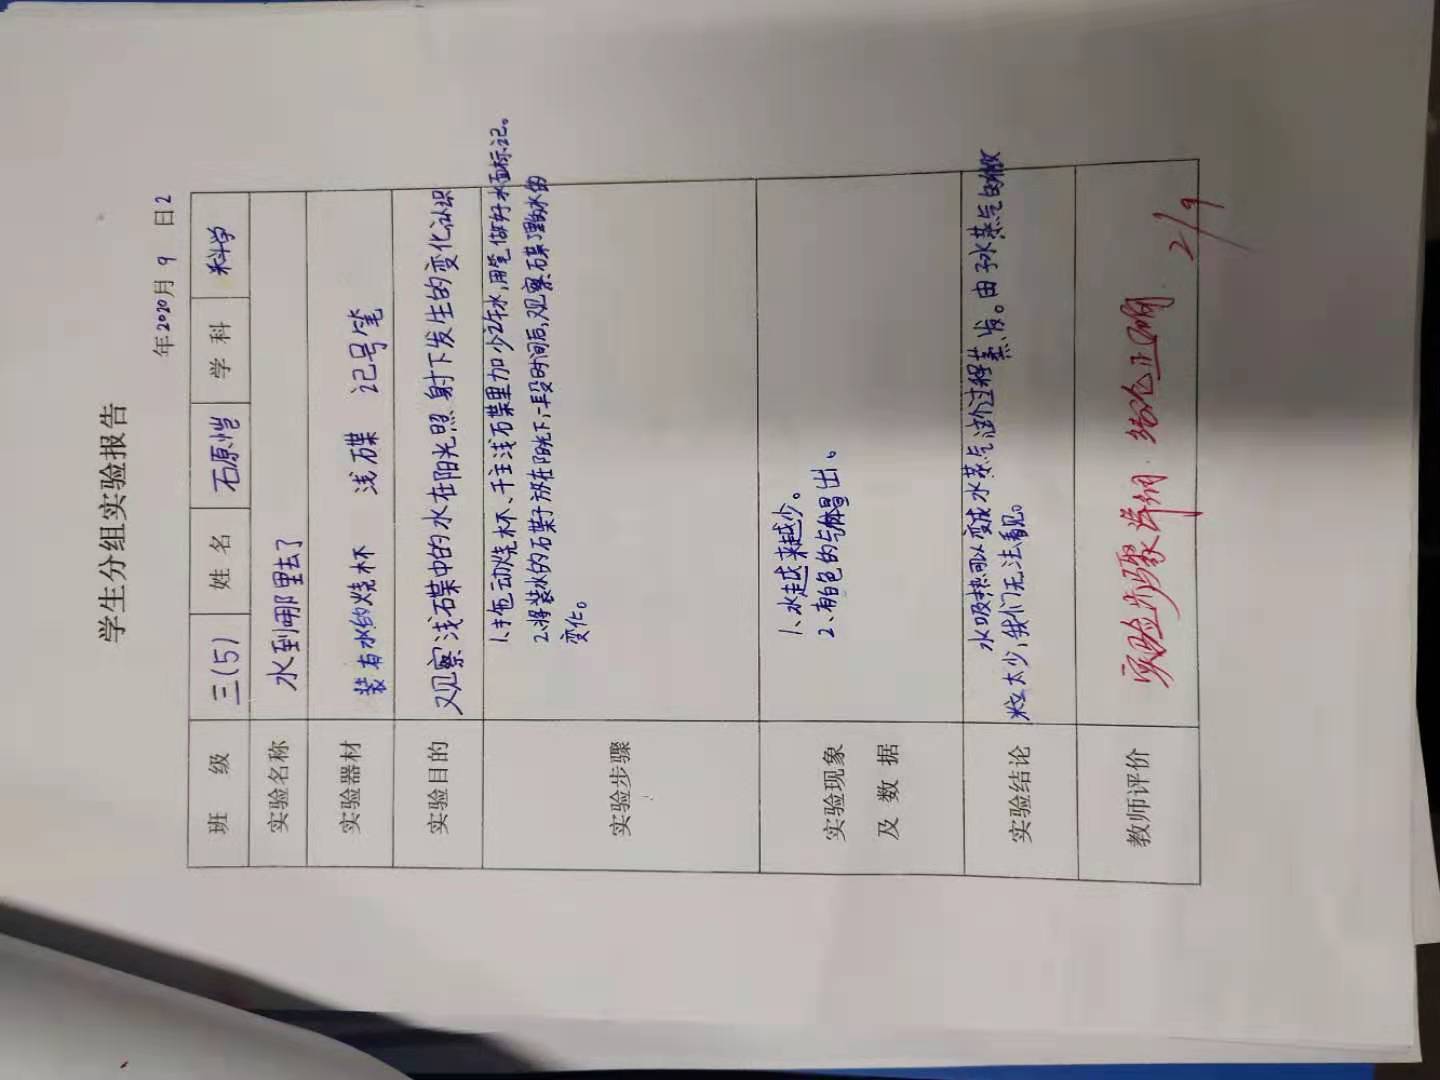 学生分组实验报告
年2020月9 日2
班 级 三(5) 姓 名 石原恺 学 科 科学
实验名称 水到哪里去了
实验器材 装有水的烧杯 浅碟 记号笔
实验目的 观察浅碟中的水在阳光照射下发生的变化认识
实验步骤
1、 动烧杯、 浅碟里加少许水,用笔做好水面标记。
2、将装水的碟子放在阳光下,一段时间后,观察碟 水的
变化。
实验现象
及 数 据
1、水越来越少。
2、有白色的气体冒出。
实验结论
水吸热可以变成水蒸气这个过程蒸发。由于水蒸气的微
粒太少,我们无法看见。
教师评价 实验步骤详细 结论正确
2/9